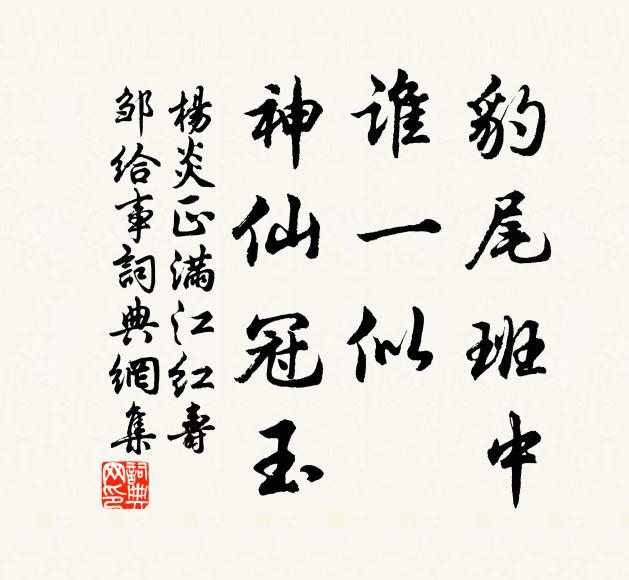 豹尾班中
誰一似
神仙冠玉
楊炎正滿江紅壽
鄒給事詞典網集
詞典
网印